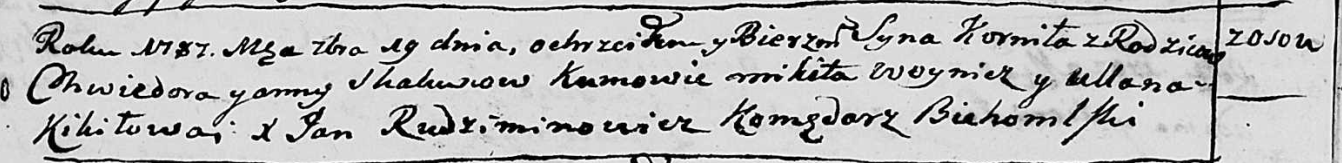 Roku 1787. Mca zbra 19 dnia, ochrzciłem y Bierzm Syna Korniła z Rodzicow zosou
Chwiedora y anny Skakunow Kumowie mikita woynicz y ullana
Kikiłowa; X Jan Rudziminowicz Komendarz Bichomlski